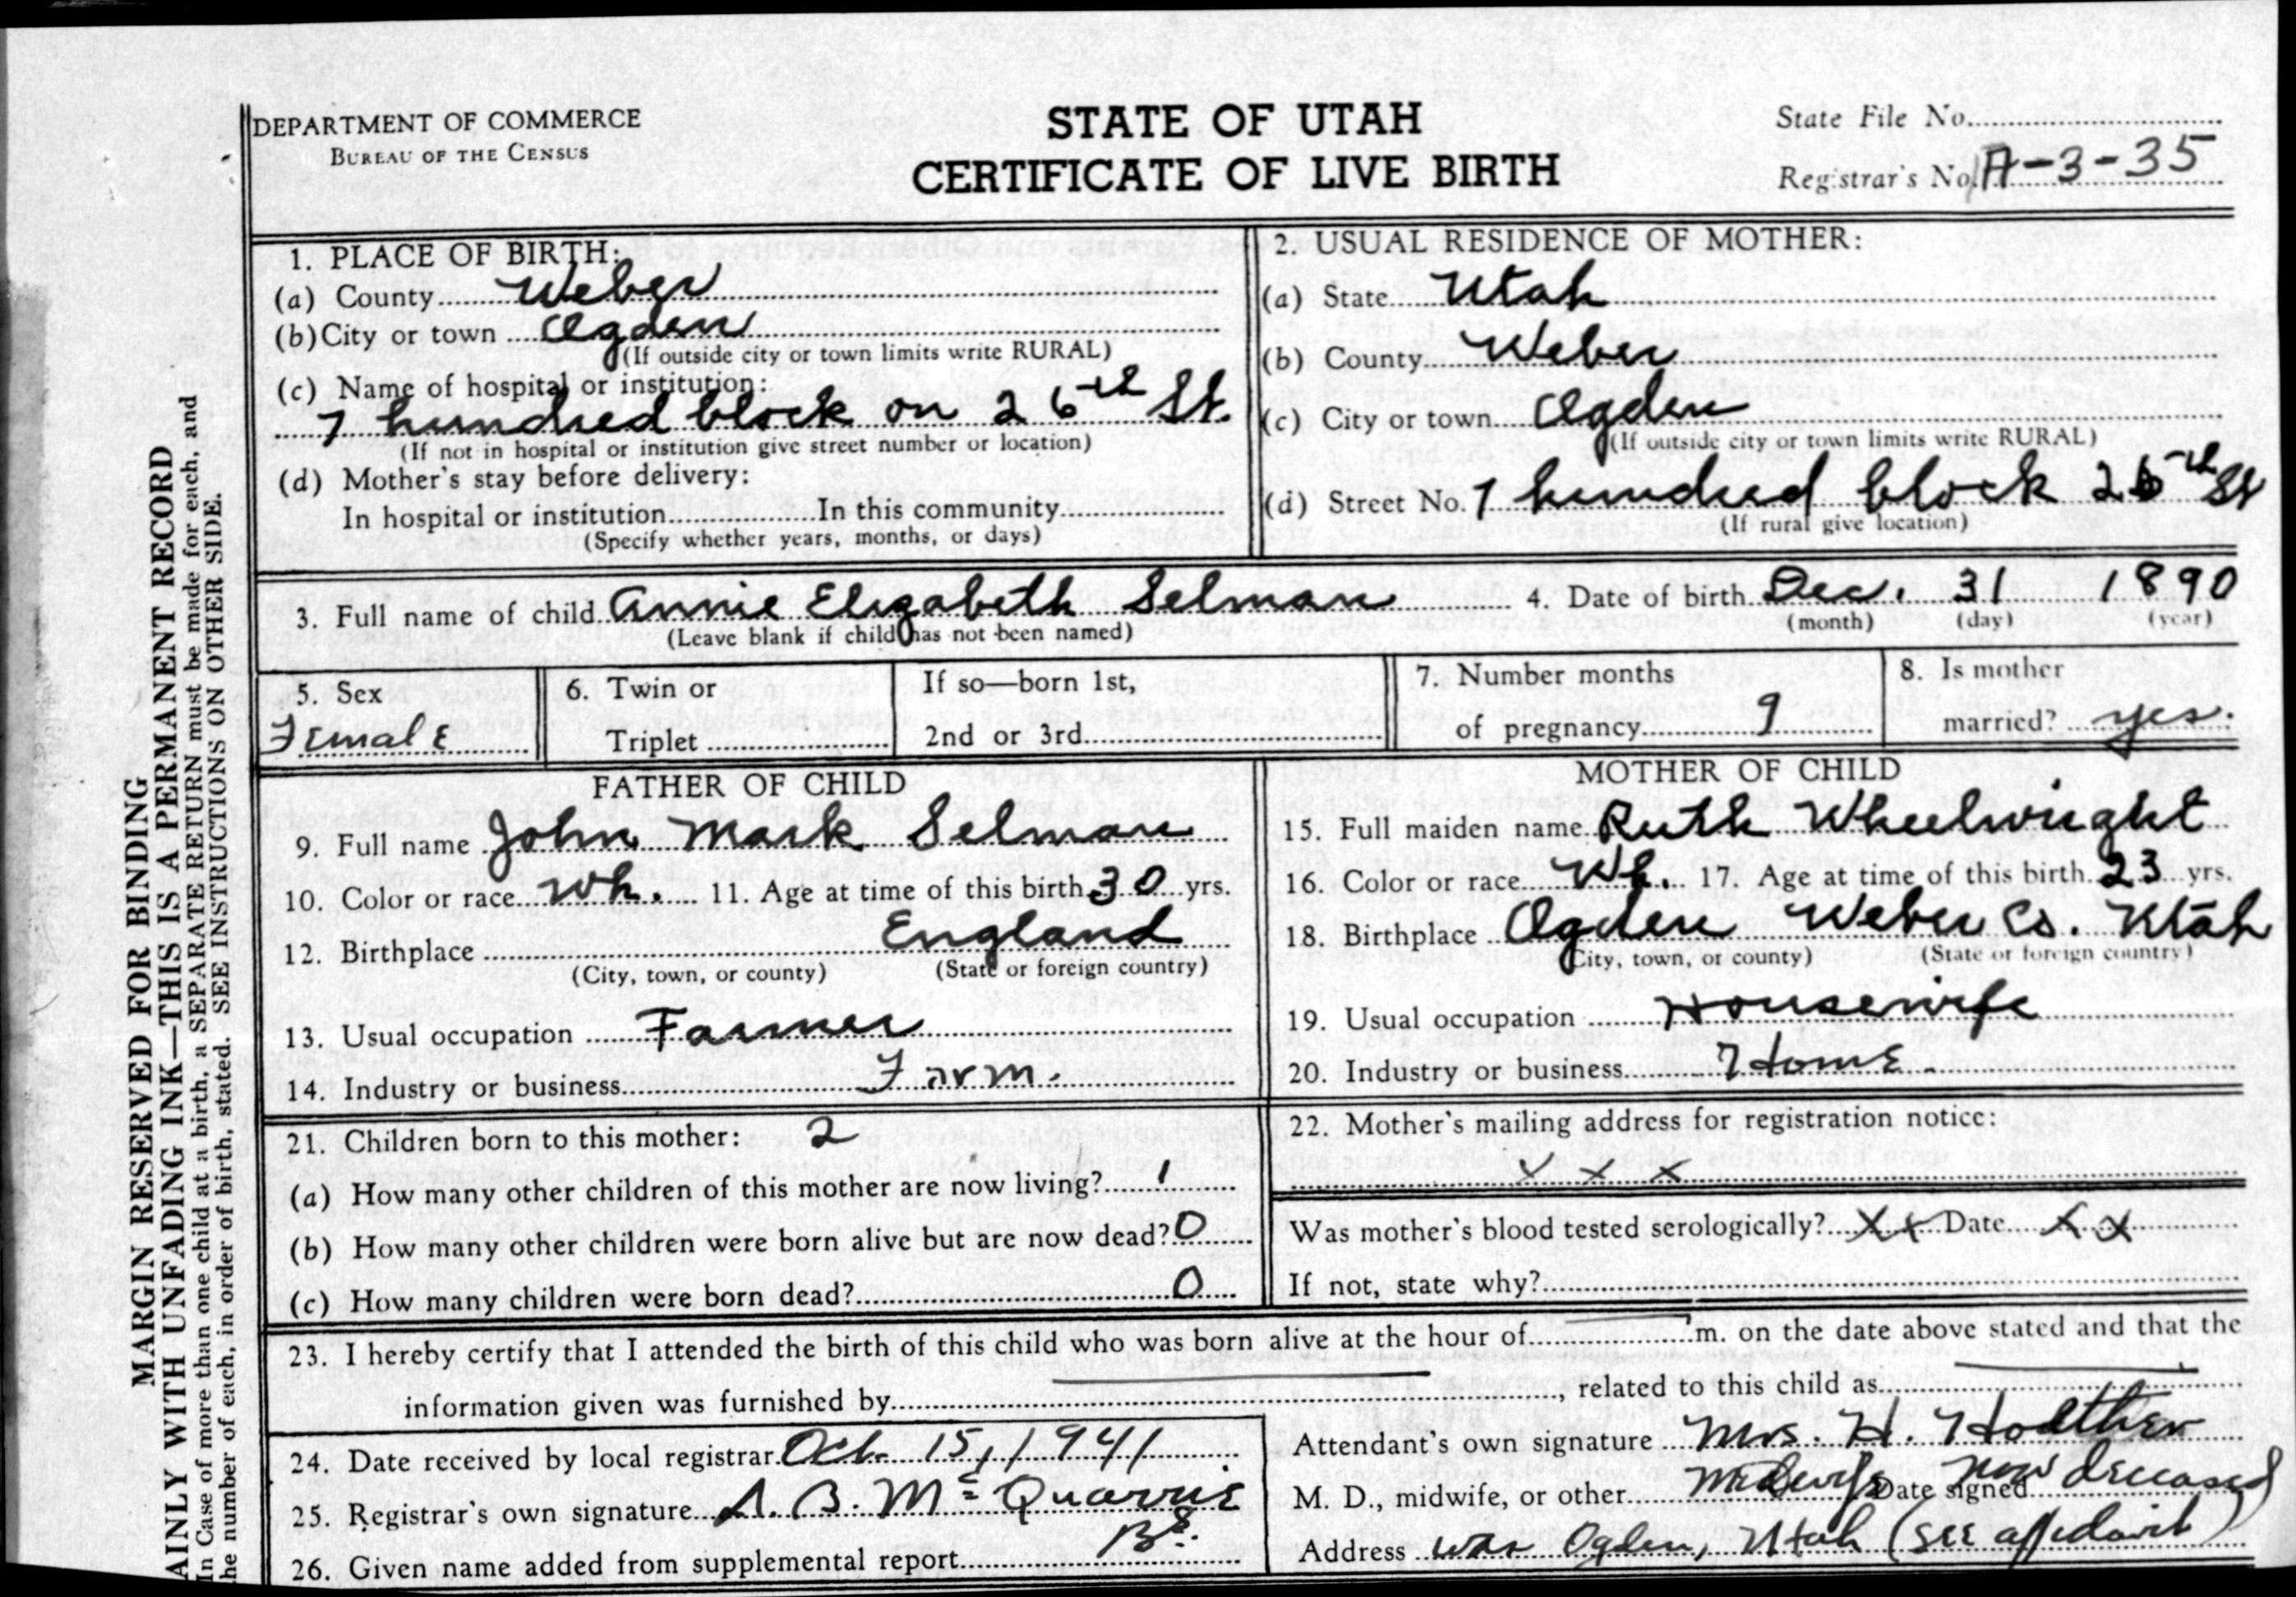 DEPARTMENT OF COMMERCE
BUREAU OF THE CENSUS
STATE OF UTAH
CERTIFICATE OF LIVE BIRTH
State File No.
Registrar's No. A-3-35
MARGIN RESERVED FOR BINDING
AINLY WITH UNFADING INK—THIS IS A PERMANENT RECORD
In Case of more than one child at a birth, a SEPARATE RETURN must be made for each, and
he number of each, in order of birth, stated. SEE INSTRUCTIONS ON OTHER SIDE.
1. PLACE OF BIRTH:
(a) County Weber
(b) City or town Ogden
(If outside city or town limits write RURAL)
(c) Name of hospital or institution:
7 hundred block on 26th St.
(If not in hospital or institution give street number or location)
(d) Mother's stay before delivery:
In hospital or institution In this community
(Specify whether years, months, or days)
2. USUAL RESIDENCE OF MOTHER:
(a) State Utah
(b) County Weber
(c) City or town Ogden
(If outside city or town limits write RURAL)
(d) Street No. 7 hundred block 26th St
(If rural give location)
3. Full name of child Annie Elizabeth Selman 4. Date of birth Dec. 31 1890
(Leave blank if child has not been named) (month) (day) (year)
5. Sex
Female
6. Twin or
Triplet
If so—born 1st,
2nd or 3rd
7. Number months
of pregnancy 9
8. Is mother
married? yes.
FATHER OF CHILD
9. Full name John Mark Selman
10. Color or race Wh. 11. Age at time of this birth 30 yrs.
12. Birthplace England
(City, town, or county) (State or foreign country)
13. Usual occupation Farmer
14. Industry or business Farm.
MOTHER OF CHILD
15. Full maiden name Ruth Wheelwright
16. Color or race Wh. 17. Age at time of this birth 23 yrs.
18. Birthplace Ogden Weber Co. Utah
(City, town, or county) (State or foreign country)
19. Usual occupation Housewife
20. Industry or business Home.
21. Children born to this mother: 2
(a) How many other children of this mother are now living? 1
(b) How many other children were born alive but are now dead? 0
(c) How many children were born dead? 0
22. Mother's mailing address for registration notice:
x x x
Was mother's blood tested serologically? xx Date xx
If not, state why?
23. I hereby certify that I attended the birth of this child who was born alive at the hour of m. on the date above stated and that the
information given was furnished by , related to this child as
24. Date received by local registrar Oct. 15, 1941
25. Registrar's own signature A. B. McQuarrie
26. Given name added from supplemental report
Attendant's own signature Mrs. H.
M. D., midwife, or other Midwife Date signed now deceased
Address was Ogden, Utah (see affidavit)